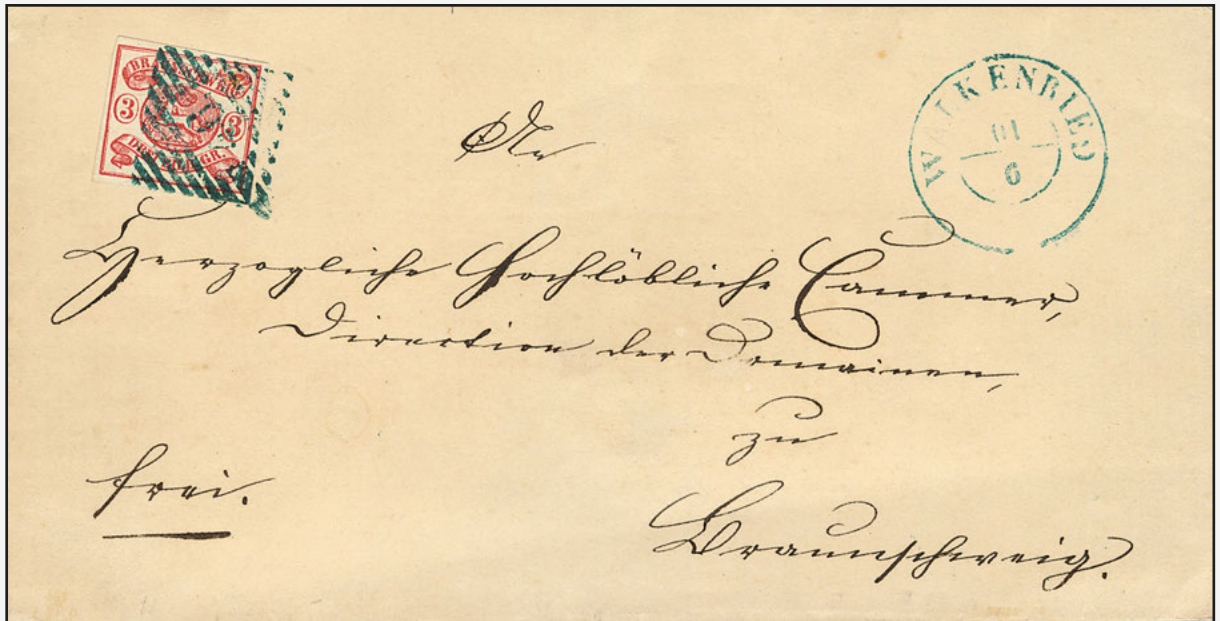 BRAUNSCHWEIG
3 3
DREI SILB. GR.
WALKENRIED
01
6
An
Herzogliche Hochlöbliche Cammer,
Direction der Domainen,
zu
frei.
Braunschweig.